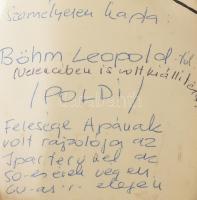 Személyesen kapta:
Böhm Leopold -tól
(Velencében is volt kiállítása)
/POLDI/
Felesége Apának
volt rajzolója az
Ipartervnél az
50-es évek végén,
60-as é. elején